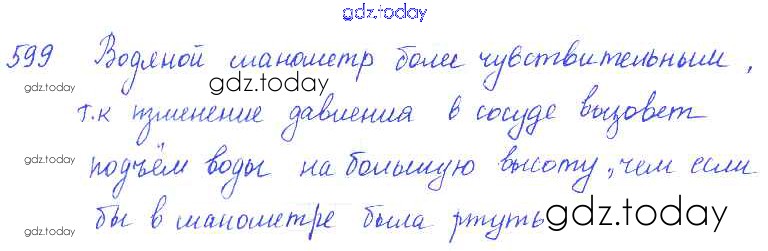 gdz.today
599 Водяной манометр более чувствительным,
gdz.today gdz.today gdz.today
т.к изменение давления в сосуде вызовет
gdz.today
подъём воды на большую высоту, чем если
gdz.today
бы в манометре была ртуть gdz.today